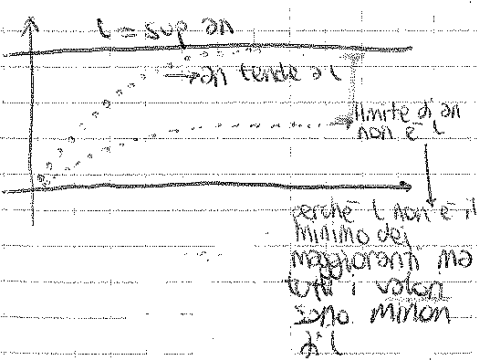 l = sup an
an tende a l
limite di an
non è l
perché l non è il
minimo dei
maggioranti ma
tutti i valori
sono minori
di l